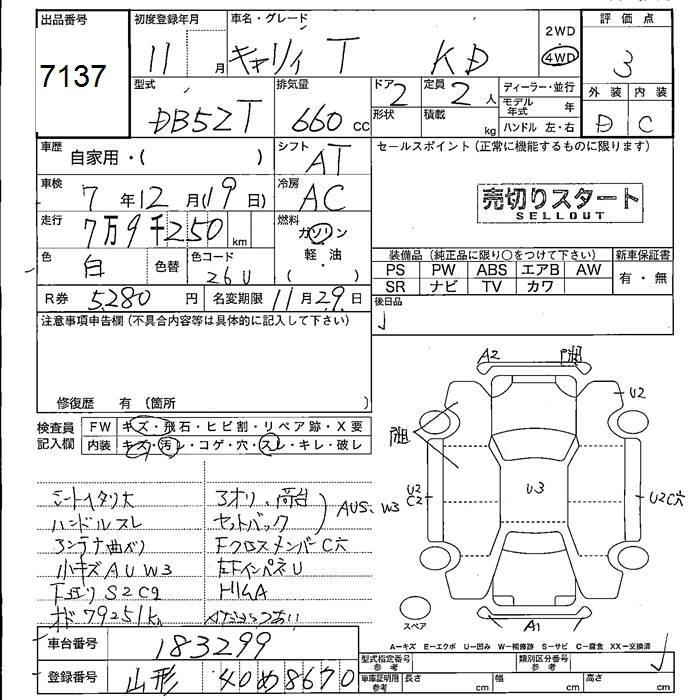 出品番号 初度登録年月 車名・グレード 評価点
7137 11月 キャリィ T KD 2WD 4WD 3
型式 排気量 ドア 定員 ディーラー・並行 外装 内装
DB52T 660cc 2 2人 モデル年式 年 D C
形状 積載 kg ハンドル 左・右
車歴 自家用・( ) シフト AT セールスポイント (正常に機能するものに限ります)
車検 7年12月(19日) 冷房 AC 売切りスタート
SELLOUT
走行 7万9千250km 燃料 ガソリン 軽油・( )
装備品 (純正品に限り○をつけて下さい) 新車保証書
色 白 色替 色コード 26U PS PW ABS エアB AW 有・無
SR ナビ TV カワ
R券 5,280円 名変期限 11月29日 後日品
注意事項申告欄 (不具合内容等は具体的に記入して下さい)
A2
U2
修復歴 有 (箇所 )
検査員記入欄 FW キズ・飛石・ヒビ割・リペア跡・X要
内装 キズ・汚レ・コゲ・穴・スレ・キレ・破レ
U3
U2 C2
U2C穴
シートヘタリ大 3オリ、高台
ハンドルスレ セットバック AUS、W3
アンテナ曲がり FクロスメンバーC穴
小キズAUW3 左FインパネU
F廻りS2C2
メーター79251km
スペア A1
A-キズ E-エクボ U-凹み W-補修跡 S-サビ C-腐食 XX-交換済
車台番号 183299 型式指定番号 参考 類別区分番号 参考
登録番号 山形 40 め 8670 車庫証明用 参考 長さ cm 幅 cm 高さ cm